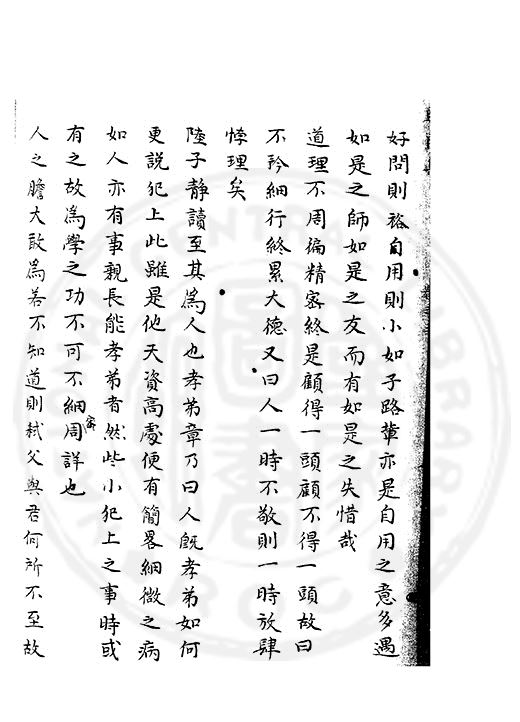 好問則裕自用則小如子路輩亦是自用之意多遇
如是之師如是之友而有如是之失惜哉
道理不周徧精密終是顧得一頭顧不得一頭故曰
不矜細行終累大德又曰人一時不敬則一時放肆
悖理矣
陸子靜讀至其為人也孝弟章乃曰人既孝弟如何
更説犯上此雖是他天資高處便有簡畧細微之病
如人亦有事親長能孝弟者然些小犯上之事時或
有之故為學之功不可不細周密詳也
人之膽大敢為若不知道則弒父與君何所不至故